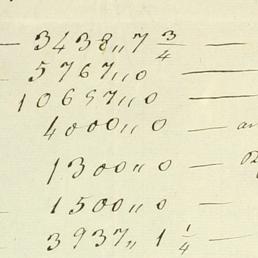 — 3438,,7 3/4 —
5767,,0 —
10657,,0 —
4000,,0 —
1300,,0 —
1500,,0 —
3937,,1 1/4 —